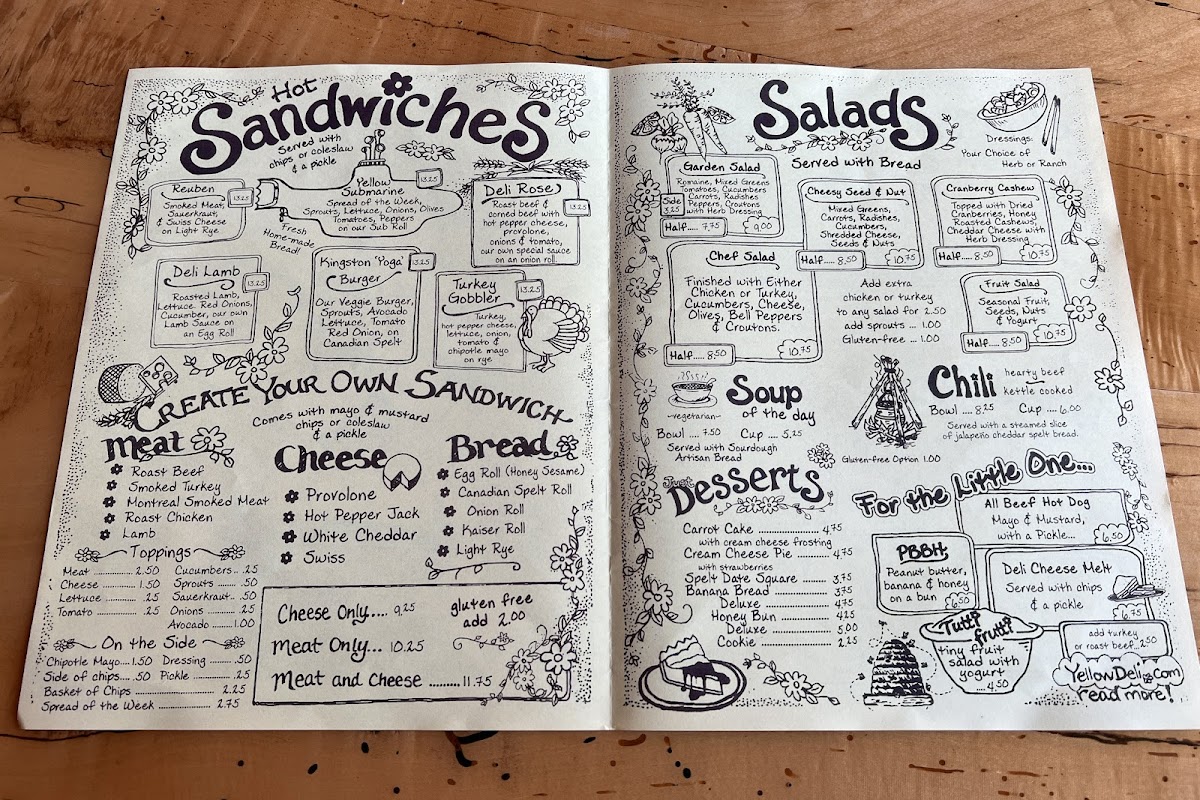 Hot
Sandwiches
Served with
chips or coleslaw
& a pickle
Reuben
13.25
Smoked Meat,
Sauerkraut,
& Swiss Cheese
on Light Rye
Yellow
Submarine
13.25
Spread of the Week,
Sprouts, Lettuce, Onions, Olives
Tomatoes, Peppers
on our Sub Roll
Fresh
Home-made
Bread!
Deli Rose
13.25
Roast beef &
corned beef with
hot pepper cheese,
provolone,
onions & tomato,
our own special sauce
on an onion roll.
Deli Lamb
13.25
Roasted Lamb,
Lettuce, Red Onions,
Cucumber, our own
Lamb Sauce on
an Egg Roll
Kingston 'Yoga'
Burger
13.25
Our Veggie Burger,
Sprouts, Avocado
Lettuce, Tomato
Red Onion, on
Canadian Spelt
Turkey
Gobbler
13.25
Turkey,
hot pepper cheese,
lettuce, onion,
tomato &
chipotle mayo
on rye
Create Your Own Sandwich
Comes with mayo & mustard
chips or coleslaw
& a pickle
Meat
Roast Beef
Smoked Turkey
Montreal Smoked Meat
Roast Chicken
Lamb
Cheese
Provolone
Hot Pepper Jack
White Cheddar
Swiss
Bread
Egg Roll (Honey Sesame)
Canadian Spelt Roll
Onion Roll
Kaiser Roll
Light Rye
Toppings
Meat ............ 2.50 Cucumbers.. .25
Cheese ............ 1.50 Sprouts ..... .50
Lettuce ............ .25 Sauerkraut.. .50
Tomato ............ .25 Onions ....... .25
Avocado ....... 1.00
On the Side
Chipotle Mayo.... 1.50 Dressing ........ .50
Side of chips.... .50 Pickle ....... .25
Basket of Chips ............ 2.25
Spread of the Week ............ 2.75
Cheese Only.... 9.25
gluten free
add 2.00
Meat Only... 10.25
Meat and Cheese ......... 11.75
Salads
Served with Bread
Dressings:
Your Choice of
Herb or Ranch
Garden Salad
Romaine, Mixed Greens
Tomatoes, Cucumbers
Carrots, Radishes
Peppers, Croutons
with Herb Dressing
Side
3.25
Half..... 7.75
9.00
Cheesy Seed & Nut
Mixed Greens,
Carrots, Radishes,
Cucumbers,
Shredded Cheese,
Seeds & Nuts
Half..... 8.50
10.75
Cranberry Cashew
Topped with Dried
Cranberries, Honey
Roasted Cashews,
Cheddar Cheese with
Herb Dressing
Half..... 8.50
10.75
Chef Salad
Finished with Either
Chicken or Turkey,
Cucumbers, Cheese,
Olives, Bell Peppers
& Croutons.
Half..... 8.50
10.75
Add extra
chicken or turkey
to any salad for 2.50
add sprouts ... 1.00
Gluten-free ... 1.00
Fruit Salad
Seasonal Fruit,
Seeds, Nuts
& Yogurt
Half..... 8.50
10.75
Soup
of the day
~vegetarian~
Bowl .... 7.50 Cup .... 5.25
Served with Sourdough
Artisan Bread
Gluten-free Option 1.00
Chili
hearty beef
kettle cooked
Bowl .... 8.25 Cup .... 6.00
Served with a steamed slice
of jalapeño cheddar spelt bread.
Just
Desserts
Carrot Cake ............ 4.75
with cream cheese frosting
Cream Cheese Pie .......... 4.75
with strawberries
Spelt Date Square ......... 3.75
Banana Bread ............ 3.75
Deluxe ............ 4.75
Honey Bun ............ 4.25
Deluxe ............ 5.00
Cookie ............ 2.25
For the Little One...
All Beef Hot Dog
Mayo & Mustard,
with a Pickle...
6.50
PBBH;
Peanut butter,
banana & honey
on a bun
6.50
Deli Cheese Melt
Served with chips
& a pickle
6.75
add turkey
or roast beef...2.50
Tutti
frutti
tiny fruit
salad with
yogurt
.... 4.50
YellowDeli.com
read more!